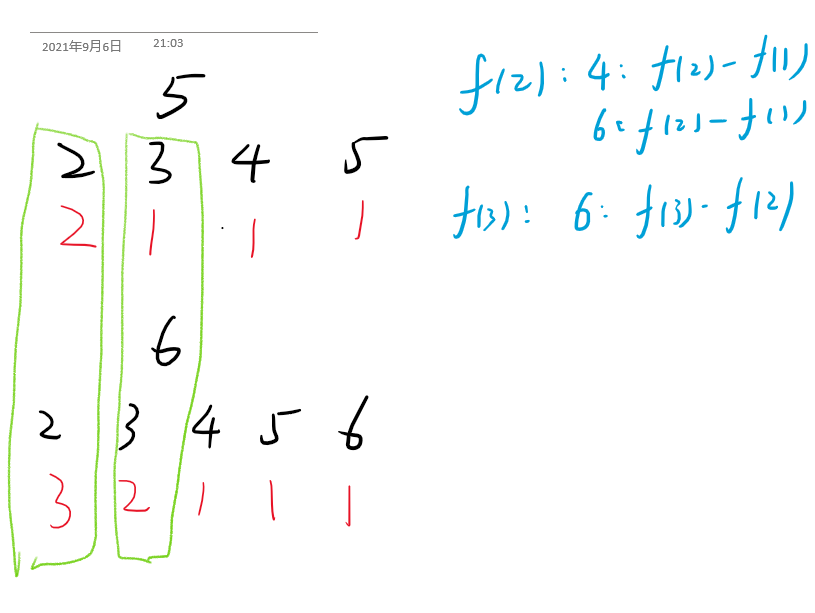 2021年9月6日 21:03
5
2 3 4 5
2 1 1 1
6
2 3 4 5 6
3 2 1 1 1
f(2): 4: f(2)-f(1)
6: f(2)-f(1)
f(3): 6: f(3)-f(2)